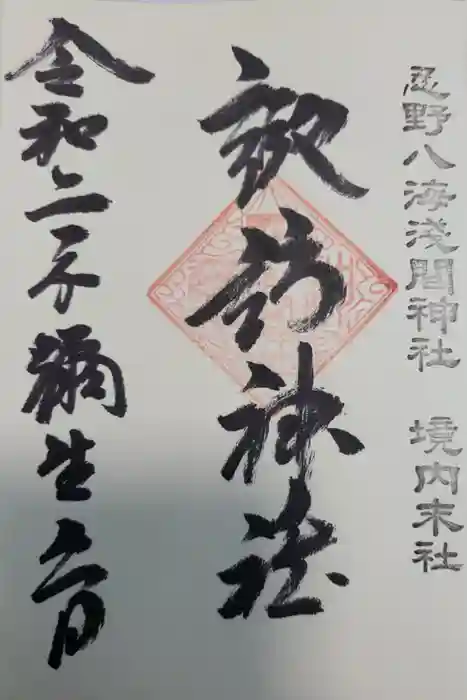 忍野八海淺間神社 境内末社
諏訪神社
令和二年彌生日